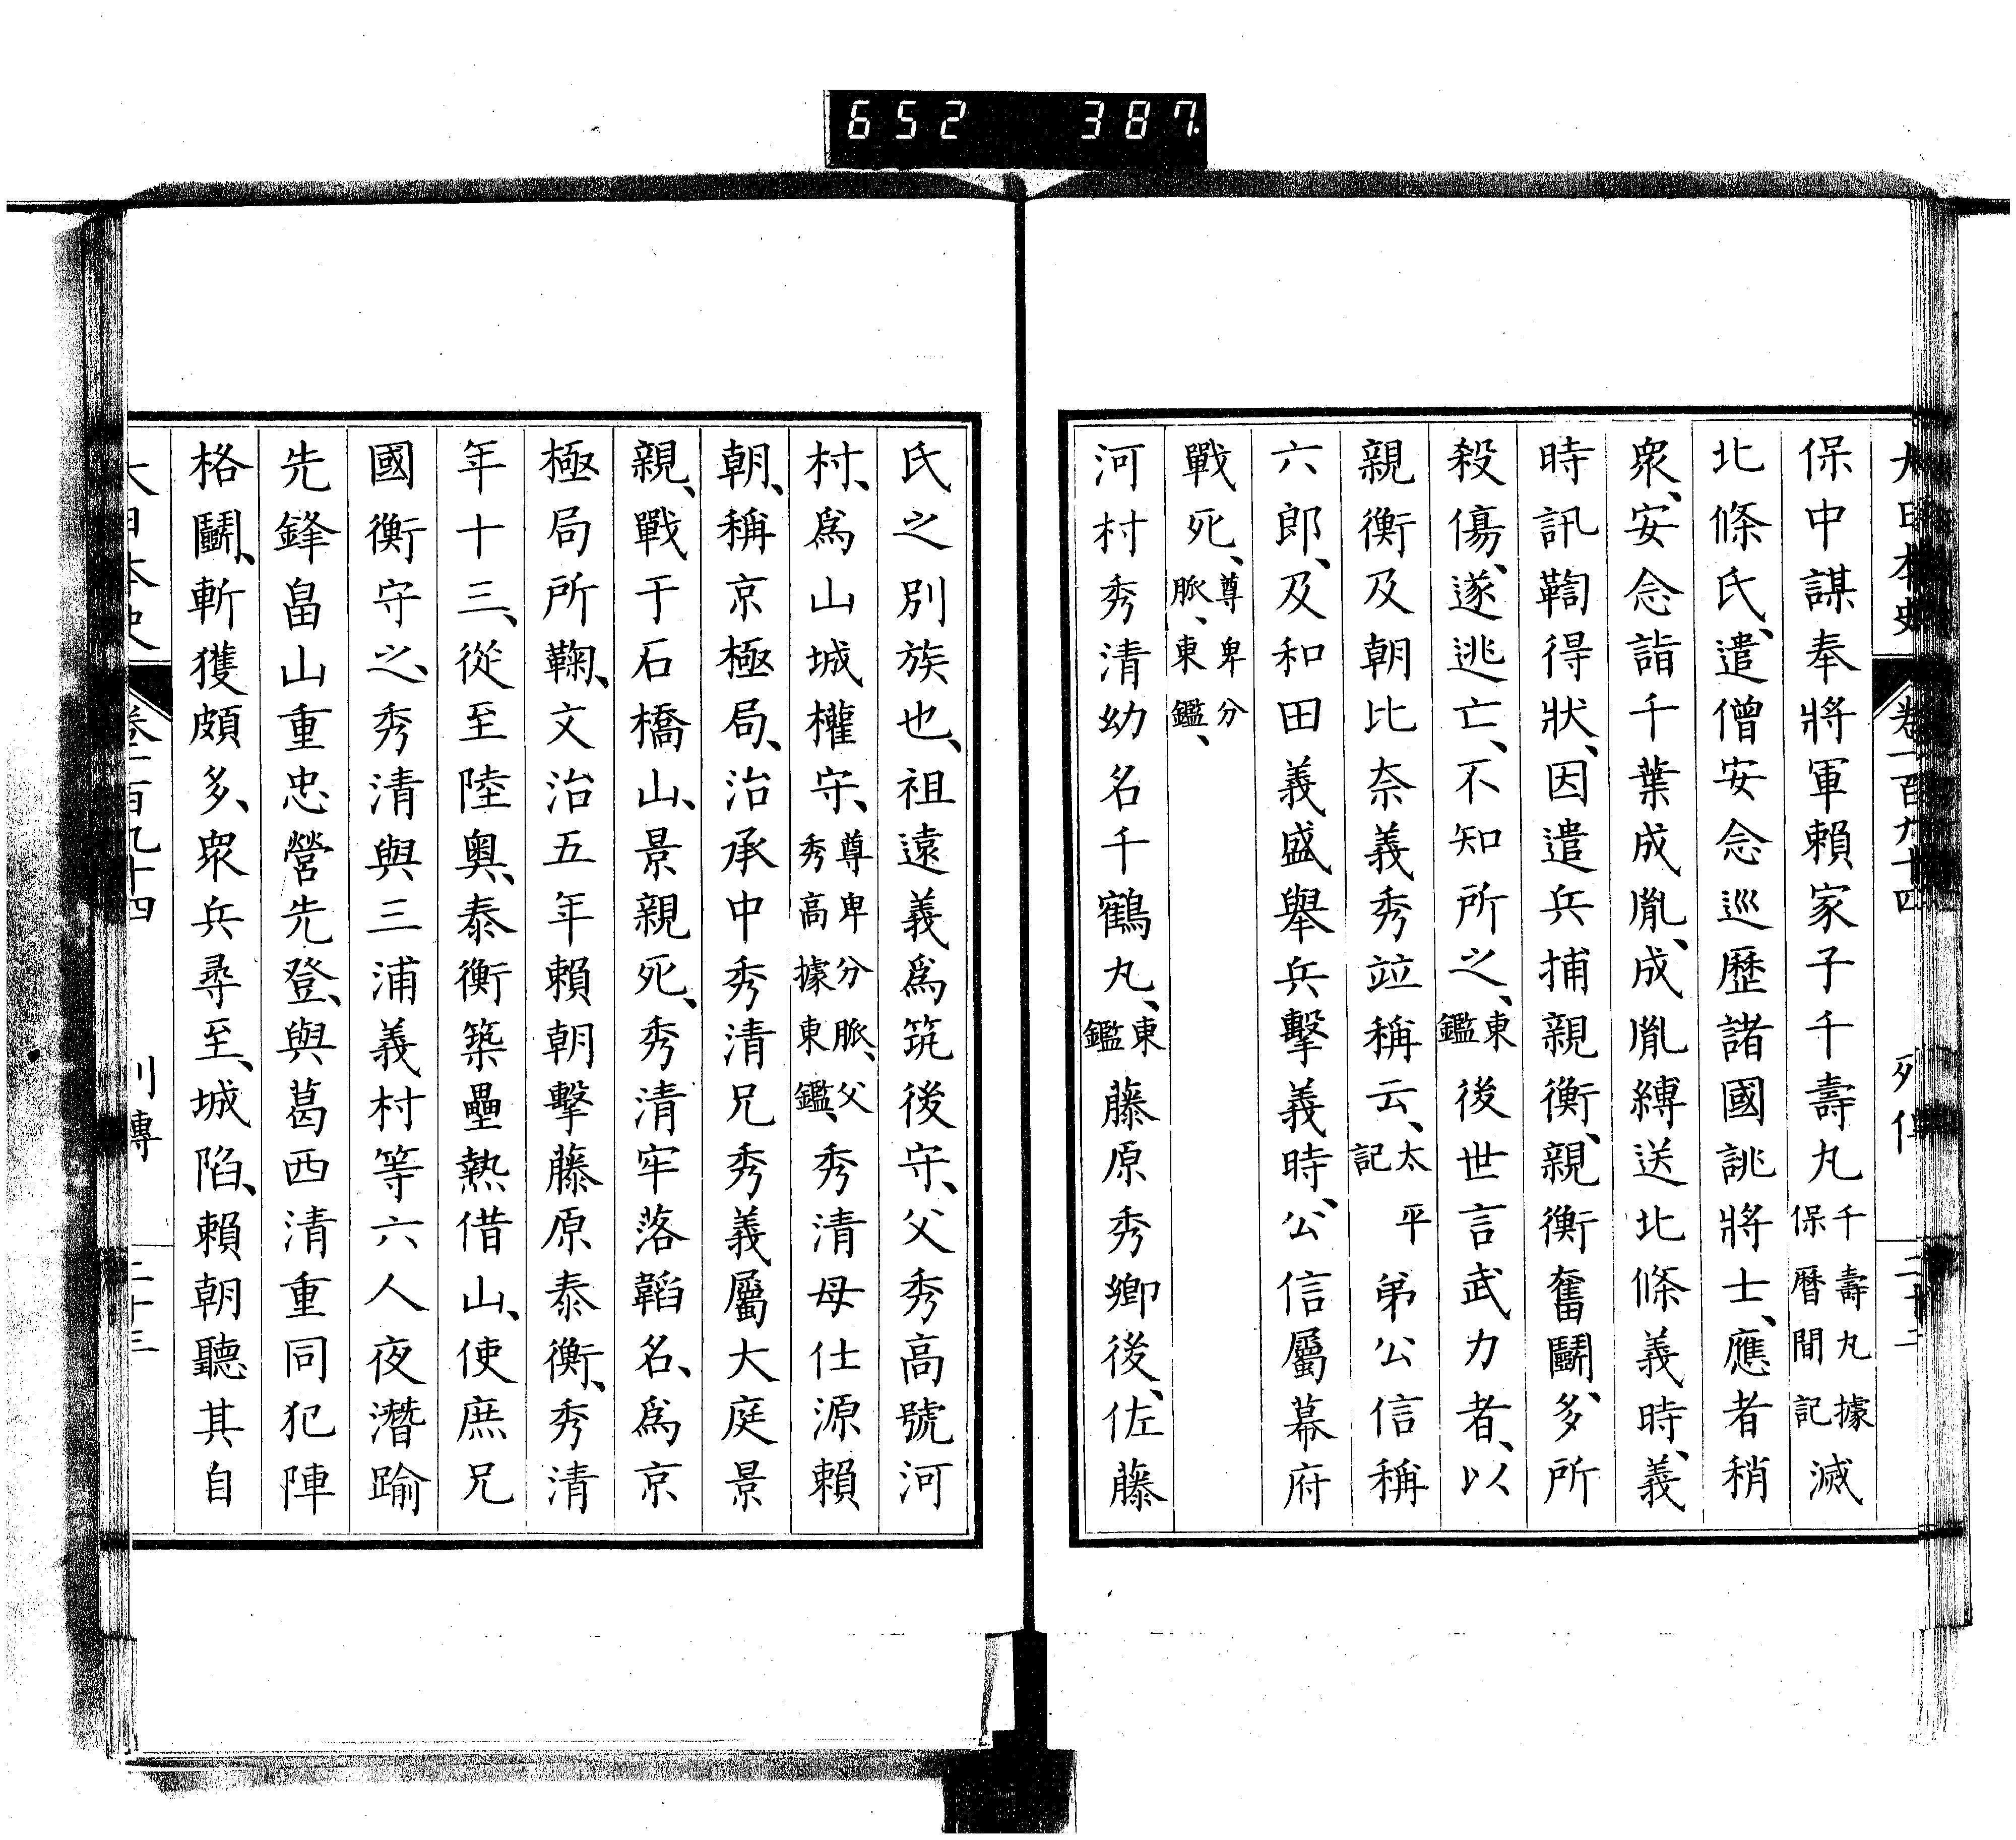 652 387
大日本史 卷一百九十四 列傳 二十二
保中謀奉將軍賴家子千壽丸千壽丸據保曆間記滅
北條氏、遣僧安念巡歷諸國誂將士、應者稍
衆、安念詣千葉成胤、成胤縛送北條義時、義
時訊鞫得狀、因遣兵捕親衡、親衡奮鬭、多所
殺傷、遂逃亡、不知所之、東鑑後世言武力者、以
親衡及朝比奈義秀竝稱云、太平記弟公信稱
六郎、及和田義盛舉兵擊義時、公信屬幕府
戰死、尊卑分脈、東鑑、
河村秀清幼名千鶴丸、東鑑藤原秀鄉後、佐藤
氏之別族也、祖遠義爲筑後守、父秀高號河
村、爲山城權守、尊卑分脈、父秀高據東鑑、秀清母仕源賴
朝、稱京極局、治承中秀清兄秀義屬大庭景
親、戰于石橋山、景親死、秀清牢落韜名、爲京
極局所鞠、文治五年賴朝擊藤原泰衡、秀清
年十三、從至陸奧、泰衡築壘熱借山、使庶兄
國衡守之、秀清與三浦義村等六人夜潛踰
先鋒畠山重忠營先登、與葛西清重同犯陣
格鬭、斬獲頗多、衆兵尋至、城陷、賴朝聽其自
大日本史 卷一百九十四 列傳 二十三